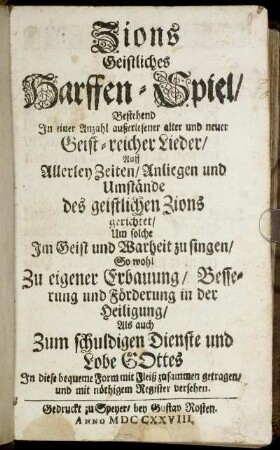 Zions
Geistliches
Harffen-Spiel/
Bestehend
In einer Anzahl außerlesener alter und neuer
Geist-reicher Lieder/
Auff
Allerley Zeiten/ Anliegen und
Umstände
des geistlichen Zions
gerichtet/
Um solche
Im Geist und Warheit zu singen/
So wohl
Zu eigener Erbauung/ Besse-
rung und Förderung in der
Heiligung/
Als auch
Zum schuldigen Dienste und
Lobe GOttes
In diese bequeme Form mit Fleiß zusammen getragen/
und mit nöthigem Register versehen.
Gedruckt zu Speyer/ bey Gustav Rosten.
ANNO MDCCXXVIII.